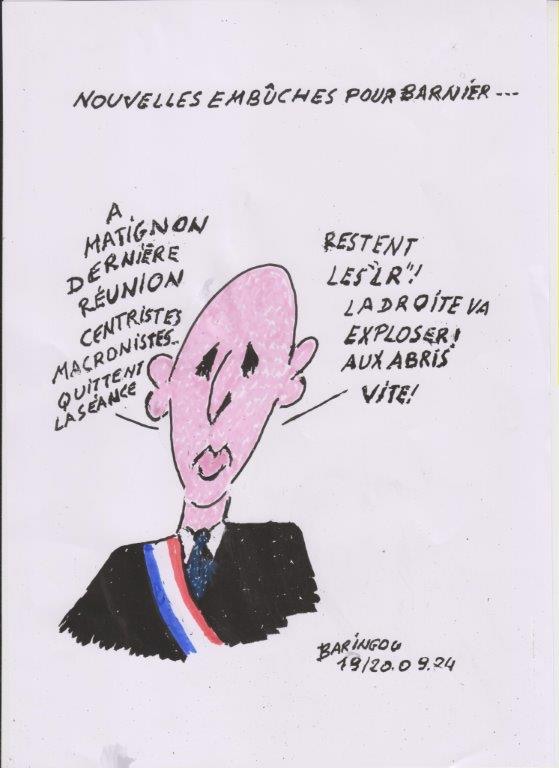 NOUVELLES EMBÛCHES POUR BARNIER...
A
MATIGNON
DERNIÈRE
RÉUNION
CENTRISTES
MACRONISTES..
QUITTENT
LA SÉANCE
RESTENT
LES "LR"!
LA DROITE VA
EXPLOSER!
AUX ABRIS
VITE!
BARINGOU
19/20.09.24